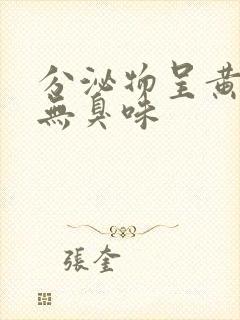 分泌物呈黄
無臭味
張奎